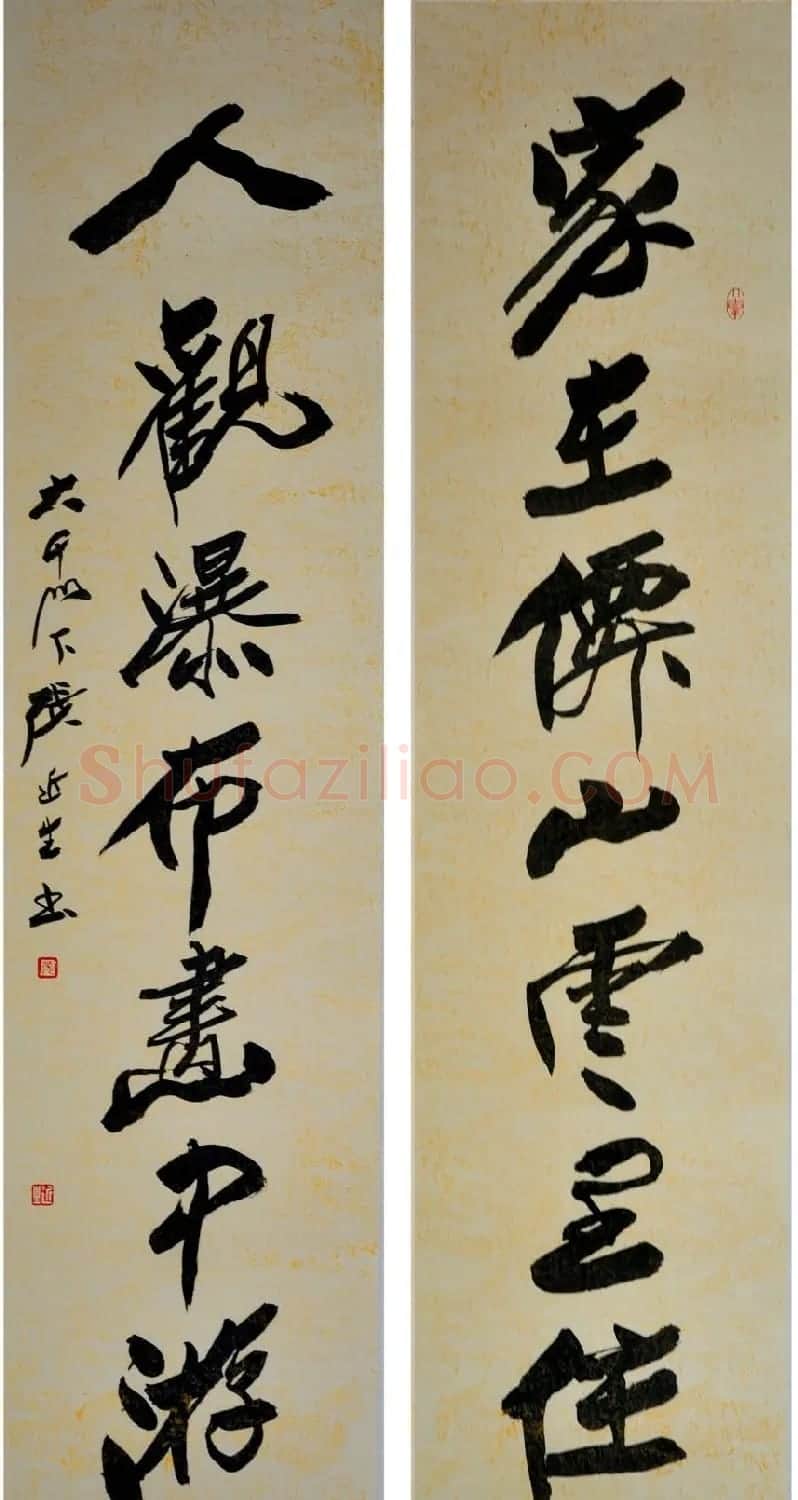 家在僊山雲里住
人觀瀑布畫中游
大千門下張近生书
Shufaziliao.COM